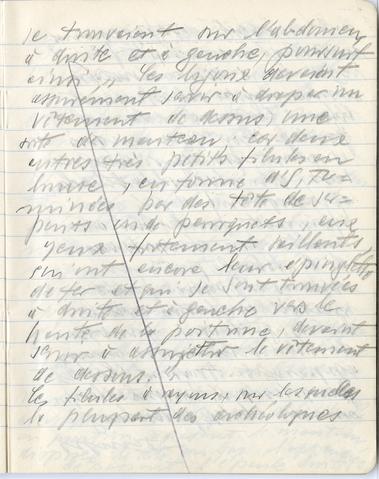 se trouvaient sur l'abdomen
à droite et à gauche, poursuit
ainsi „ les bijoux devaient
assurement servir à draper un
vêtement de dessous, une
sorte de manteau; car deux
autres très petits fibules en
bronze, en forme d'S, ter=
minées par des têtes de ser=
pents ou de perroquets, aux
yeux fortement saillants,
qui ont encore leur épinglette
de fer et qui se sont trouvées
à droite et à gauche vers le
haute de la poitrine, devaient
servir à assujettir le vêtement
de dessous."
Les fibules à rayons, sur lesquelles
la pluspart des archéologues